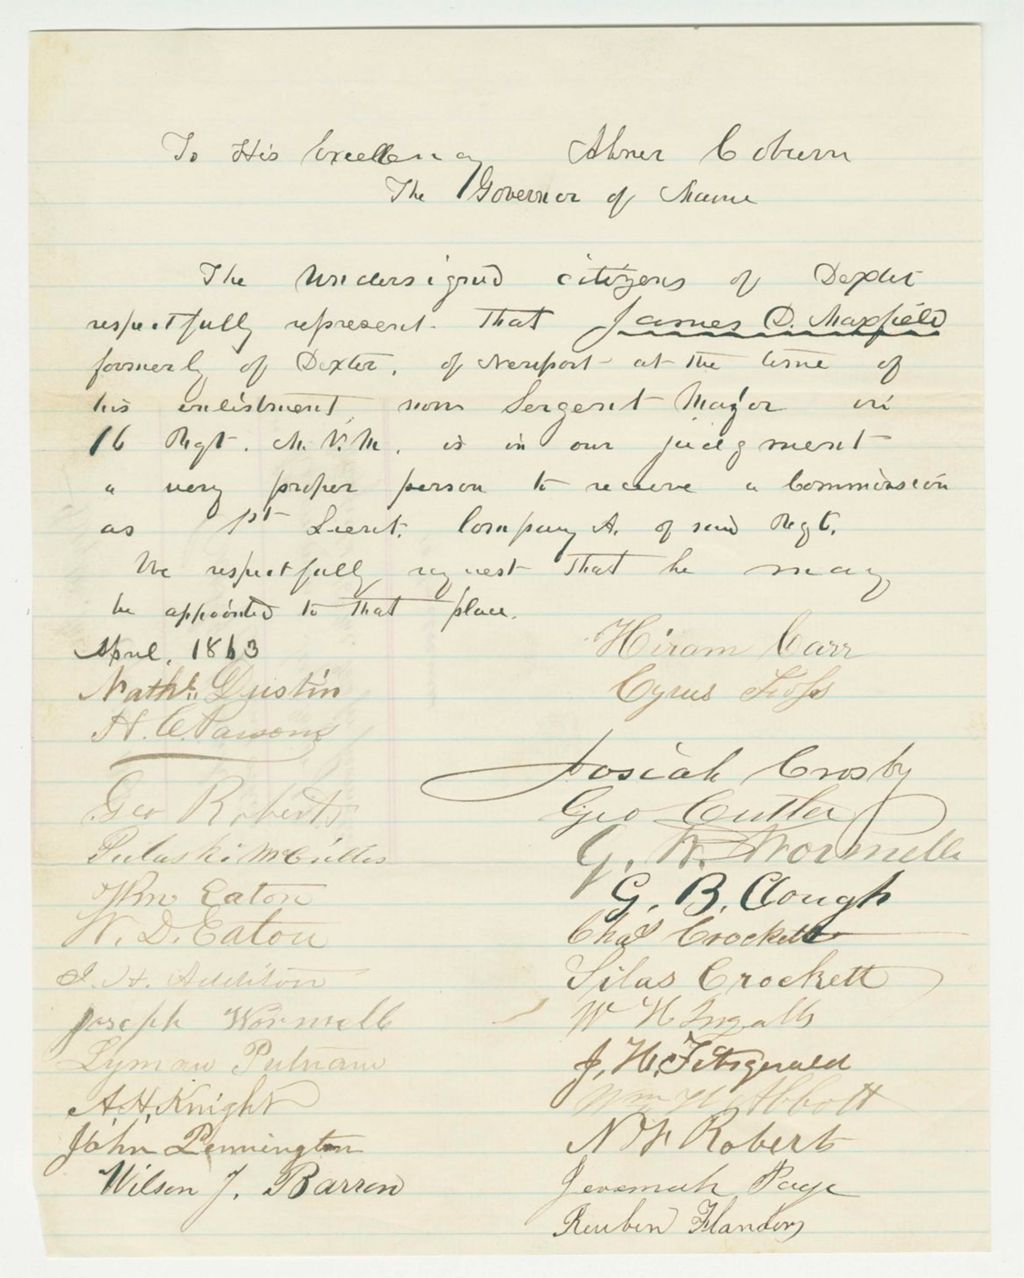 To His Excellency Abner Coburn
The Governor of Maine
The Undersigned citizens of Dexter
respectfully represent. That James D. Maxfield
formerly of Dexter, of Newport at the time of
his enlistment, now Sergent Major in
16 Regt. M. V. M. is in our judgment
a very proper person to receive a Commission
as 1st Lieut. Company A. of said Regt.
We respectfully request that he may
be appointed to that place.
April, 1863
Hiram Carr
Nathl. Dustin
Cyrus Foss
H. C. Parsons
Josiah Crosby
Geo Roberts
Geo Cutler
Pulaski
G. W. Wormell
Wm Eaton
G. B. Clough
W. D. Eaton
Chas Crockett
J. H. Additon
Silas Crockett
Joseph Wormell
W H Ingalls
Lyman Putnam
J. H. Fitzgerald
A. H. Knight
Wm H Abbott
John Pennington
N F Roberts
Wilson J. Barron
Jeremiah Page
Reuben Flanders